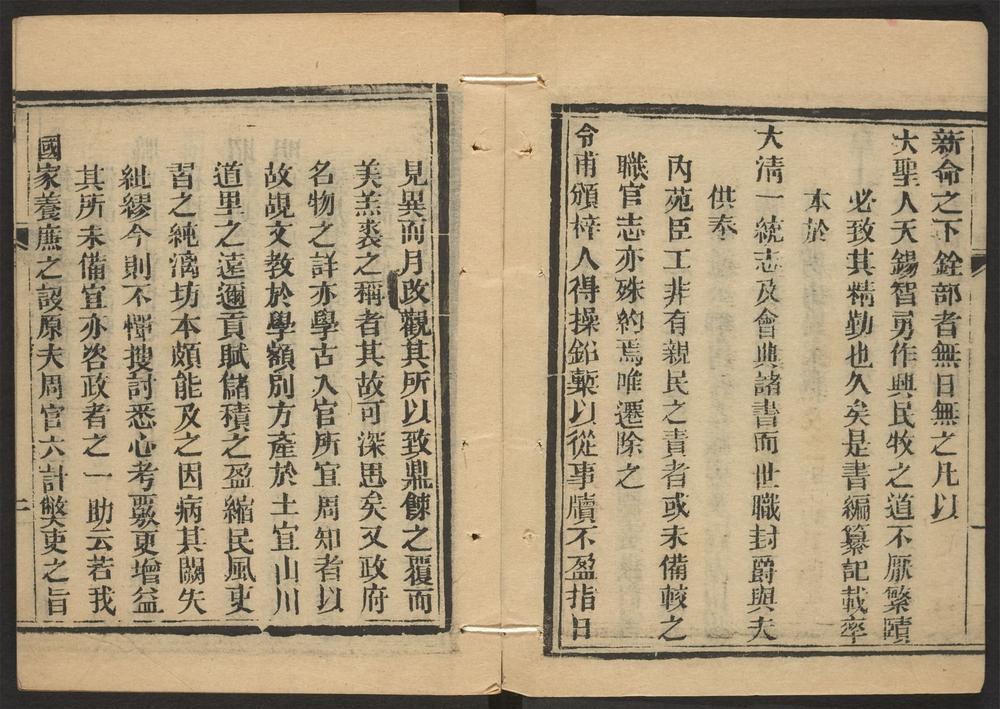 新命之下銓部者無日無之凡以
大聖人天錫智勇作興民牧之道不厭繁賾
必致其精勤也久矣是書編纂記載率
本於
大清一統志及會典諸書而世職封爵與夫
供奉
內苑臣工非有親民之責者或未備較之
職官志亦殊約焉唯遷除之
令甫頒梓人得操鉛槧以從事牘不盈指日
見異而月改觀其所以致鼎餗之覆而
美羔裘之稱者其故可深思矣又政府
名物之詳亦學古入官所宜周知者以
故覘文教於學額別方產於土宜山川
道里之遠邇貢賦儲積之盈縮民風吏
習之純漓坊本頗能及之因病其闕失
紕繆今則不憚搜討悉心考覈更增益
其所未備宜亦咨政者之一助云若我
國家養廉之設原夫周官六計獘吏之旨
二